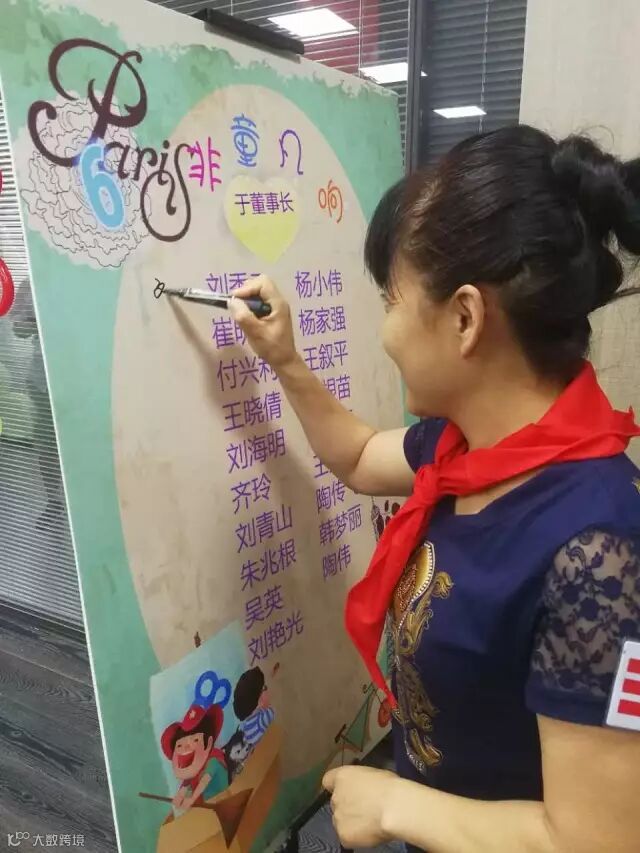 Paris
6
非童凡响
于董事长
杨小伟
杨家强
付兴利 王叙平
王晓倩
刘海明
齐玲 陶传
刘青山 韩梦丽
朱兆根 陶伟
吴英
刘艳光
大数跨境